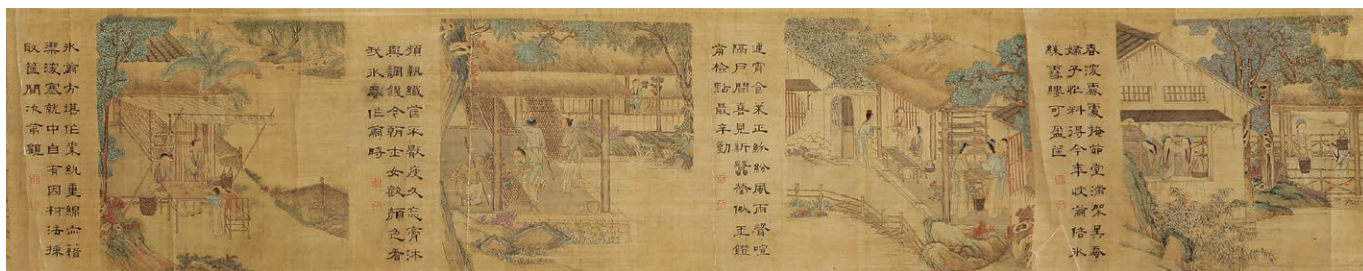 春深處處掩茅堂滿架吳蠶
婦子忙料得今年收繭倍冰
絲雪縷可盈筐
連宵食葉正紛紛風雨聲喧
隔戶聞喜見新蠶瑩似玉鐙
前檢點最辛勤
頻執纖筐不厭疲久忘膏沐
與調饑今朝士女歡顏色看
我冰蠶作繭時
冰繭方堪作素紈重綿亦藉
禦深寒就中自有因材法揀
取筐間次第觀